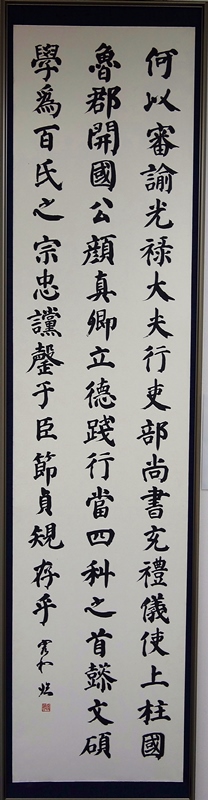 何以審諭光祿大夫行吏部尚書充禮儀使上柱國
魯郡開國公顏真卿立德踐行當四科之首懿文碩
學為百氏之宗忠讜罄于臣節貞規存乎